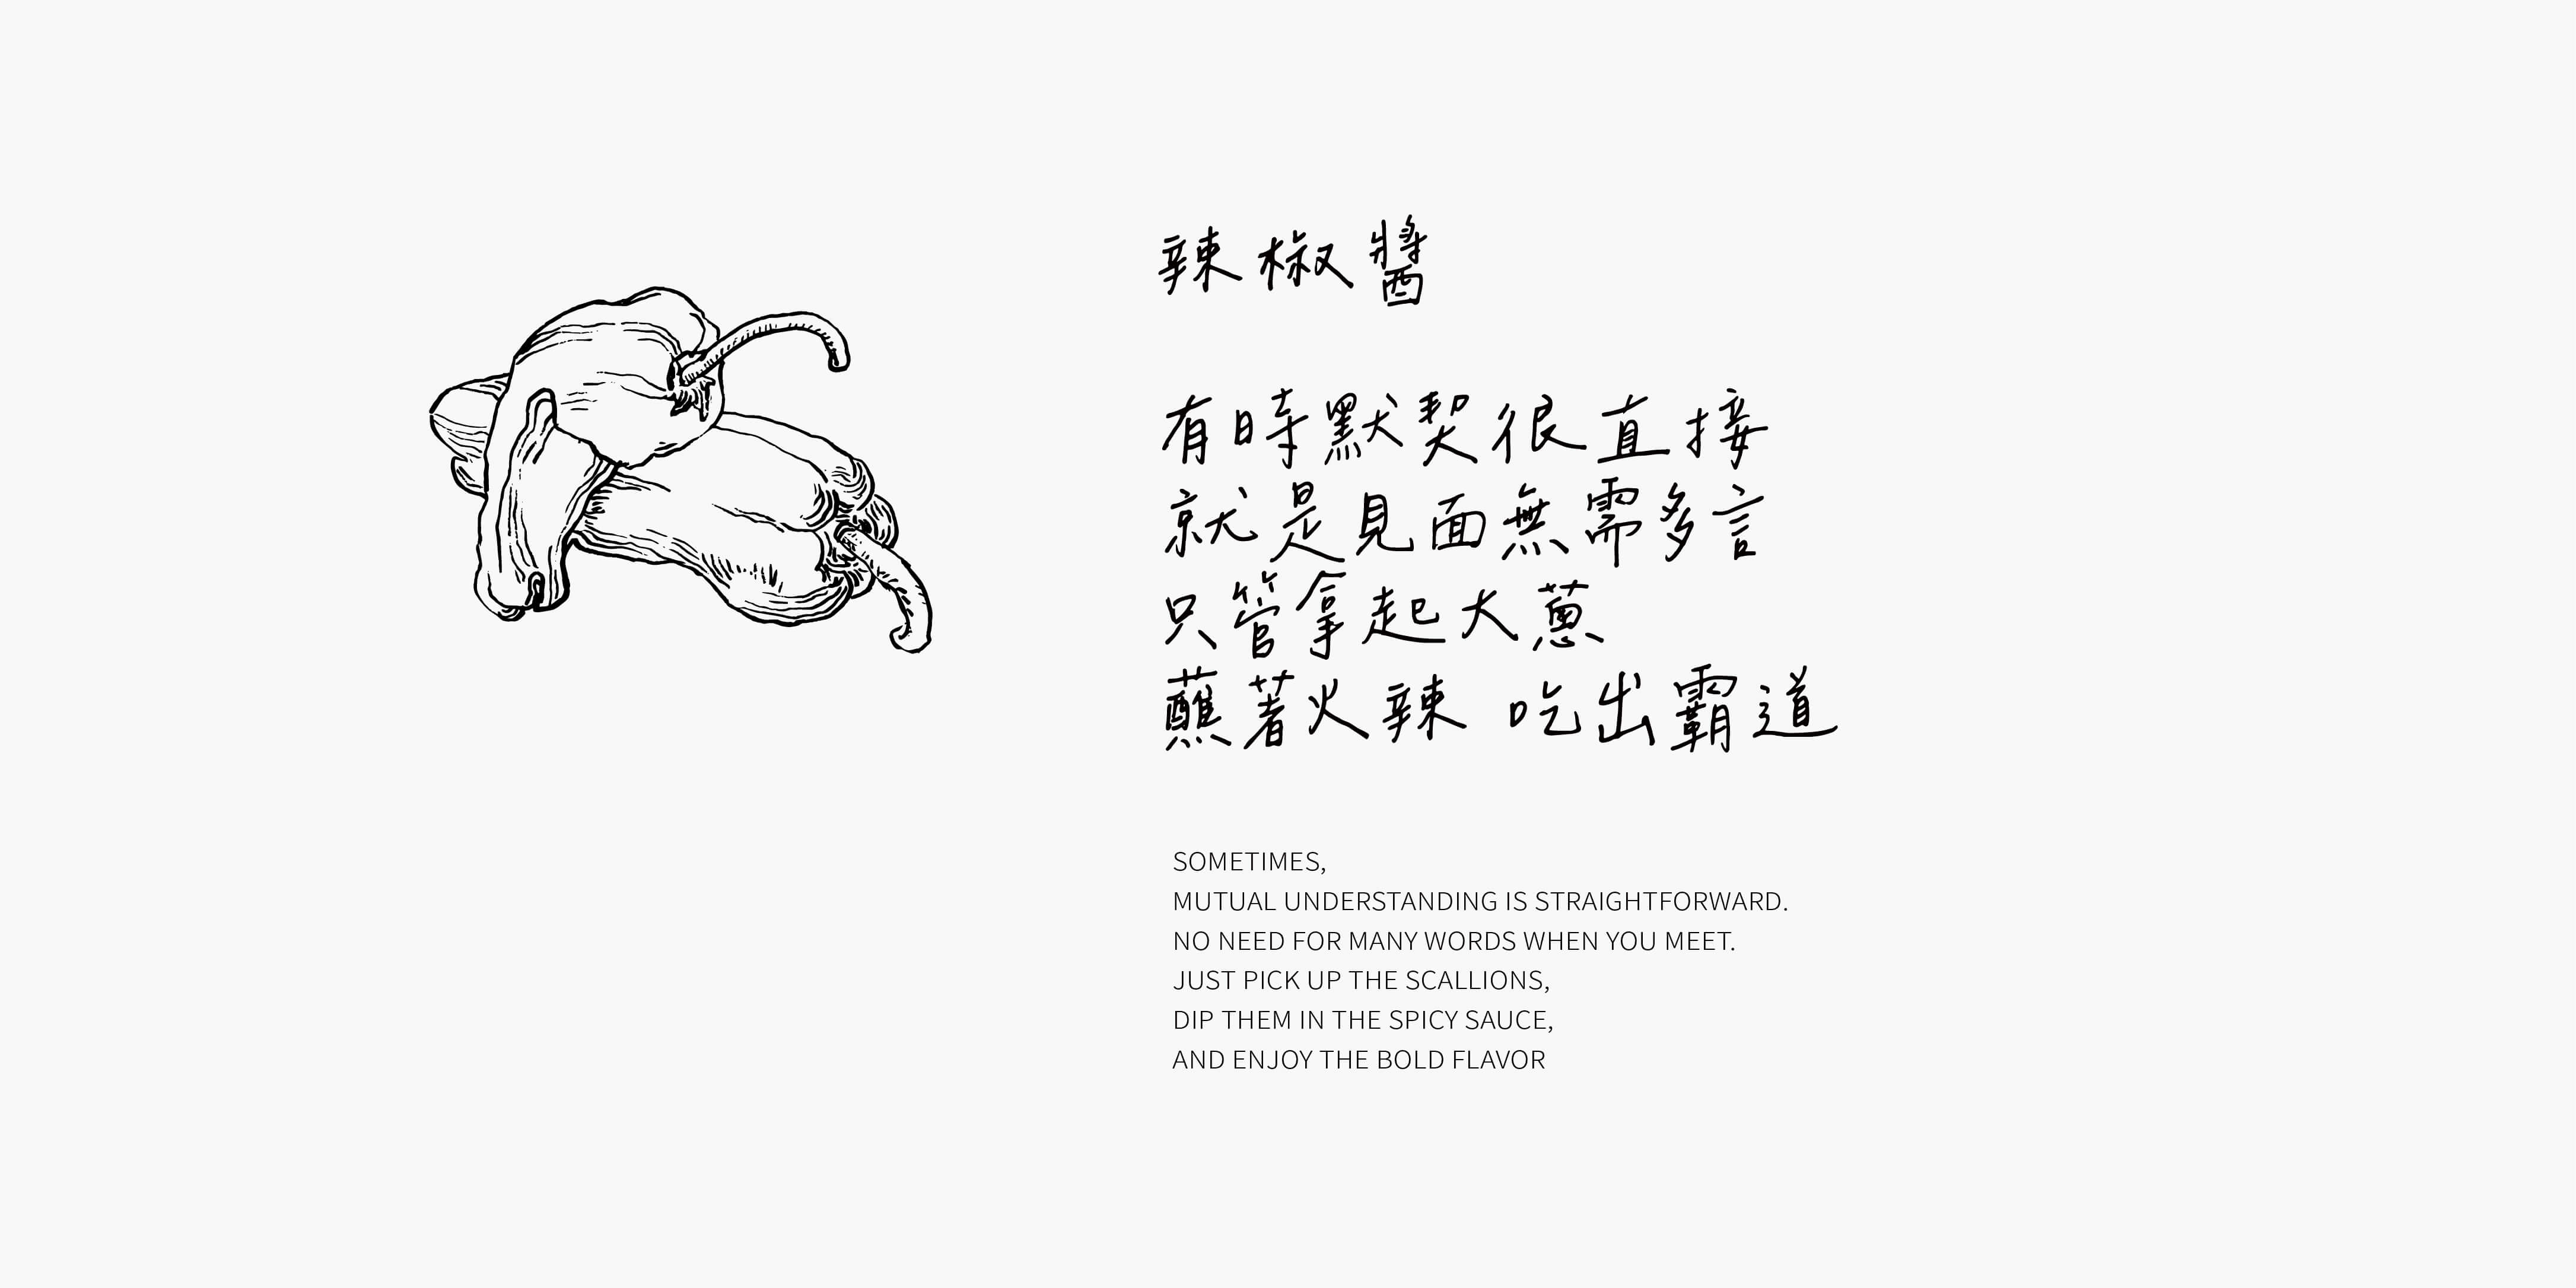 辣椒醬
有時默契很直接
就是見面無需多言
只管拿起大蔥
蘸著火辣 吃出霸道
SOMETIMES,
MUTUAL UNDERSTANDING IS STRAIGHTFORWARD.
NO NEED FOR MANY WORDS WHEN YOU MEET.
JUST PICK UP THE SCALLIONS,
DIP THEM IN THE SPICY SAUCE,
AND ENJOY THE BOLD FLAVOR